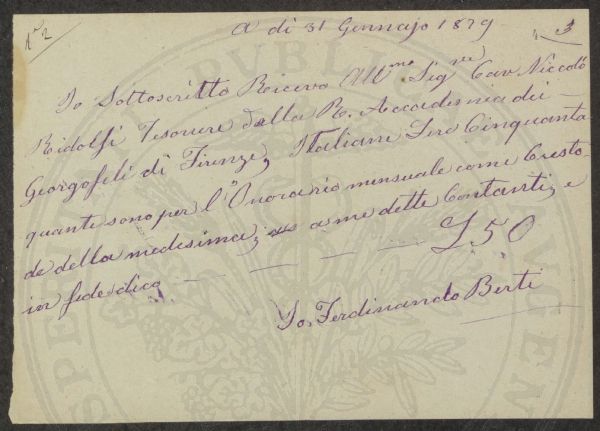 N° 2
3
A di 31 Gennajo 1879
Io Sottoscritto Ricevo Ill.mo Sig.re Cav Niccolò
Ridolfi Tesoriere della R. Accademia dei
Georgofili di Firenze, Italiane Lire Cinquanta
quante sono per l'Onorario mensuale come Custo-
de della medesima; a me dette Contanti, e
in fede dico — — — — £50
Io Ferdinando Berti
PVBLICAE
PROSPER